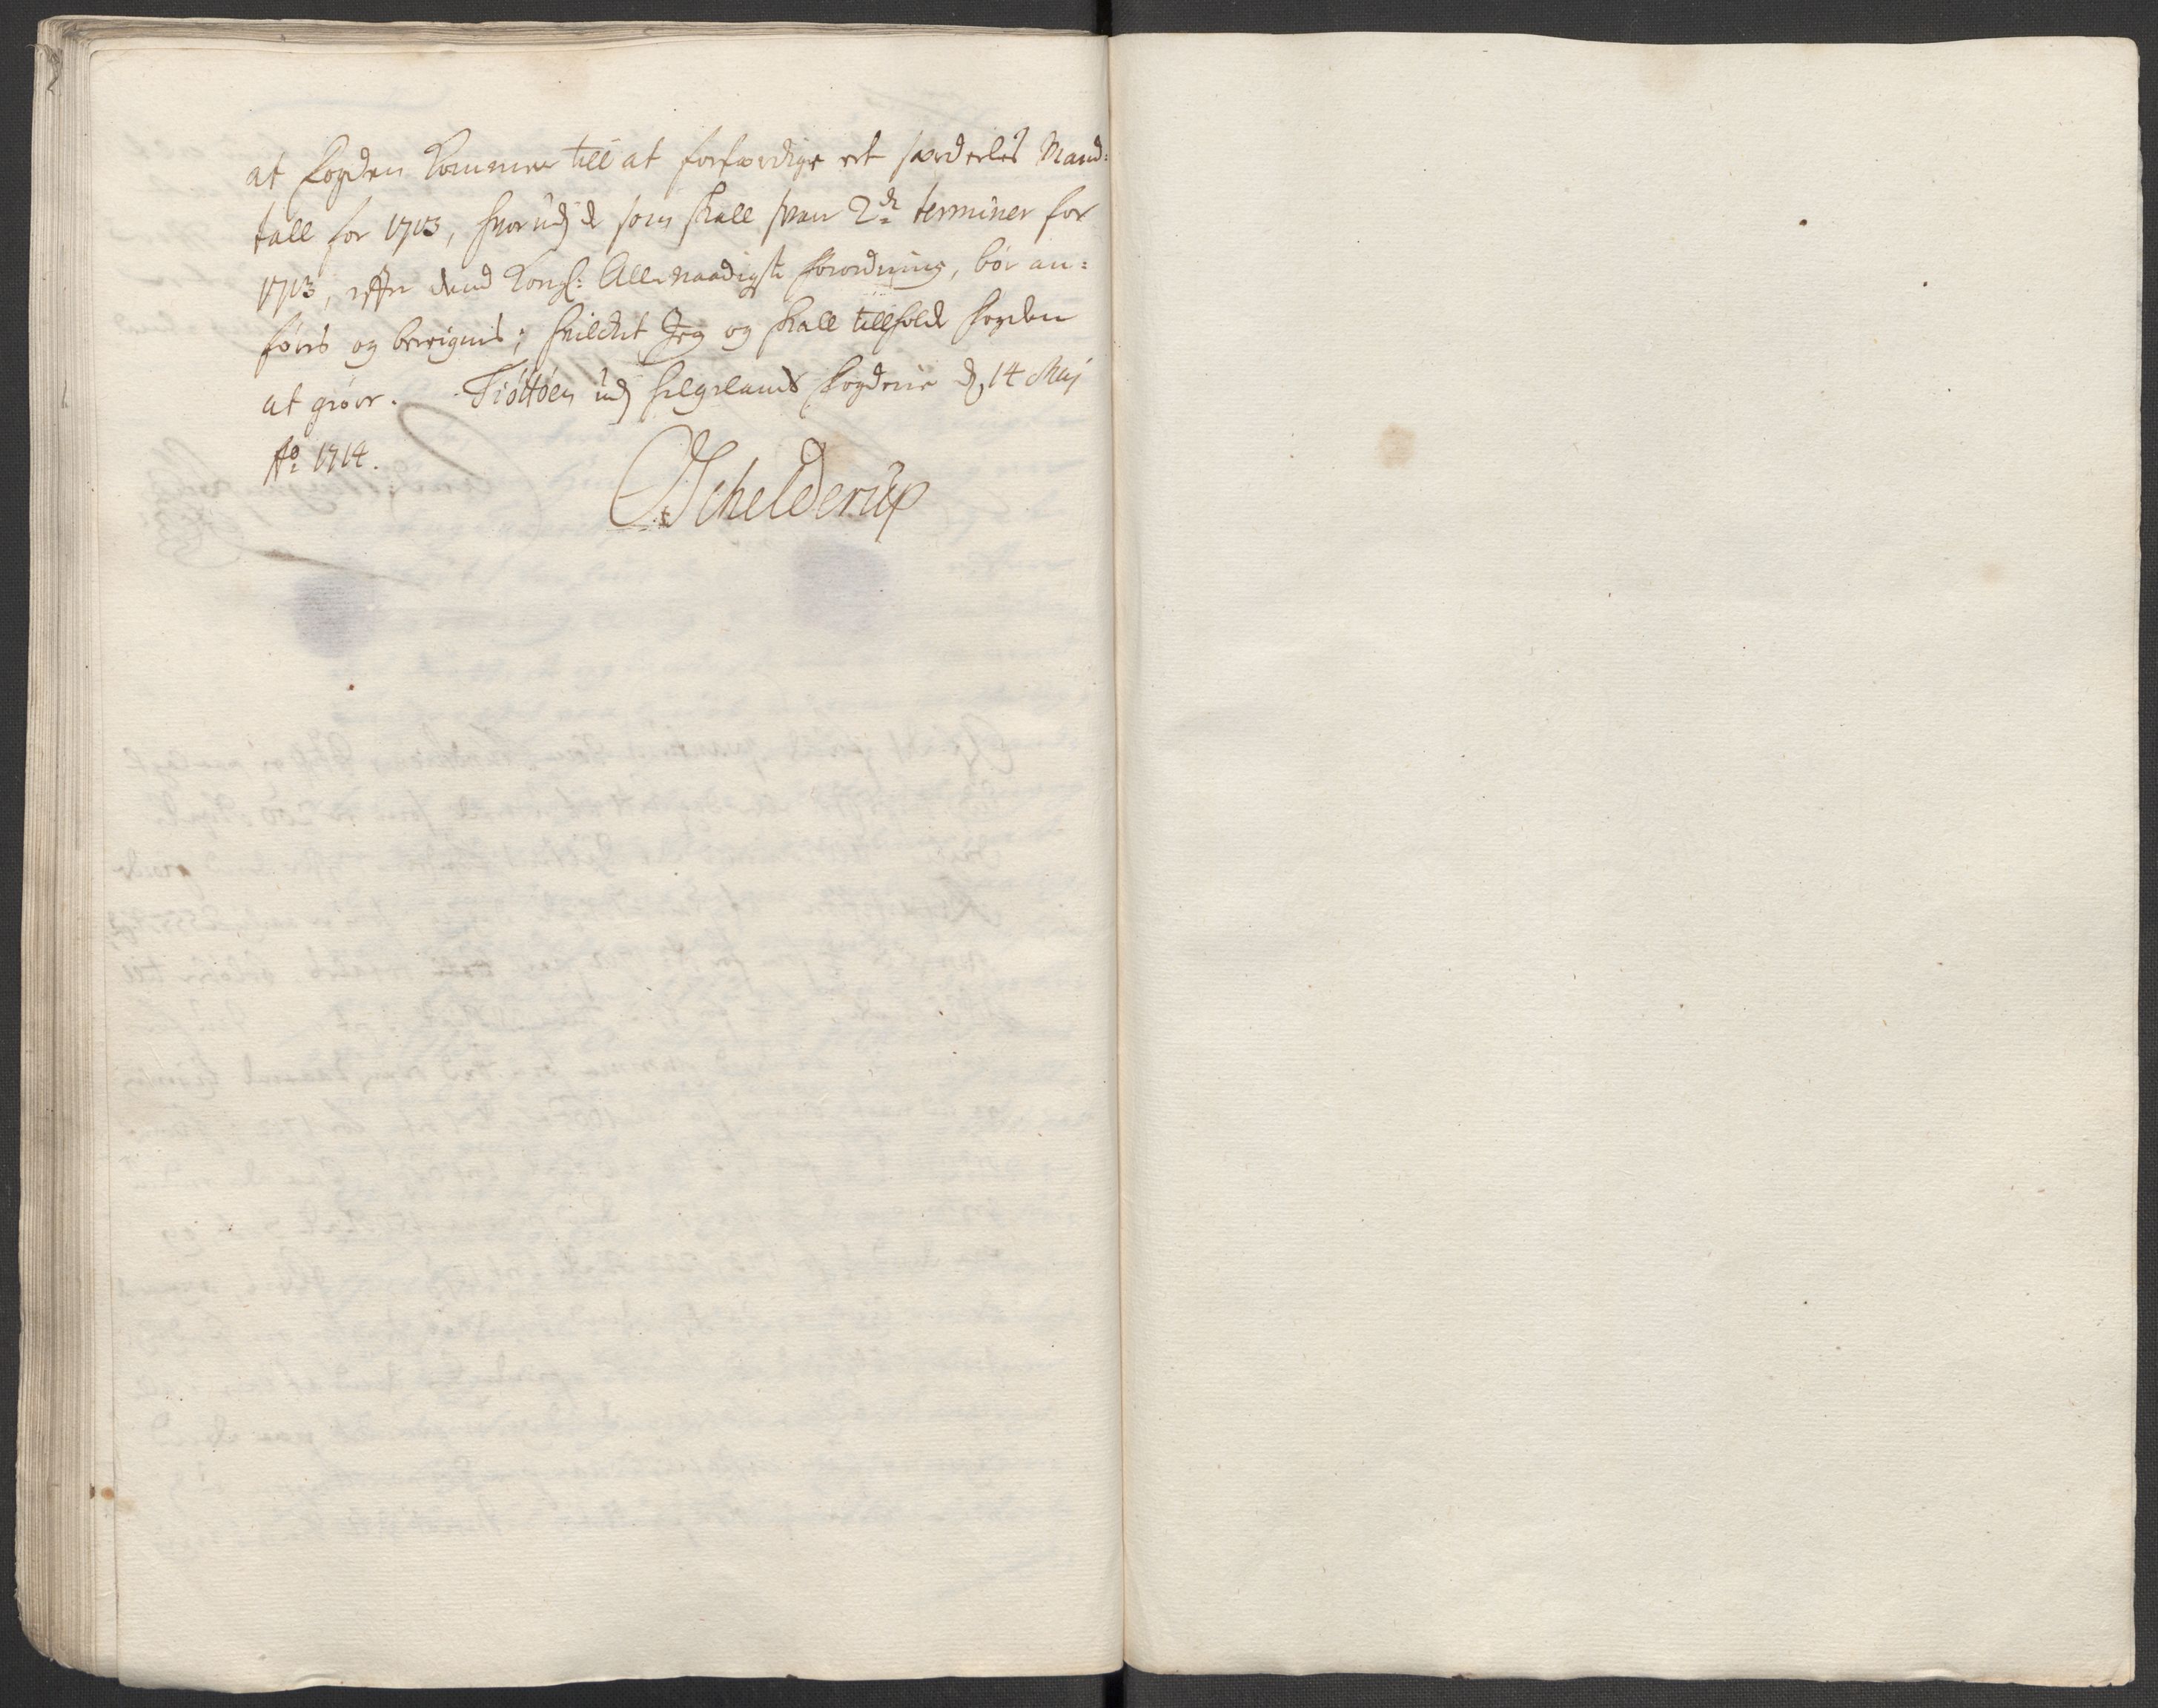 at fogden kommer till at forfærdige et særdeles Mand:
tall for 1713, hvorudj de som skall svare 2de terminer for
1713, efter dend Kongl: Allernaadigste forordning, bør an:
føris og bereignis; hvilchet Jeg og skall tillholde fogden
at giøre. Tiøttøen udj Helgelands fogderie d, 14 Maj
Ao 1714.
Schelderup